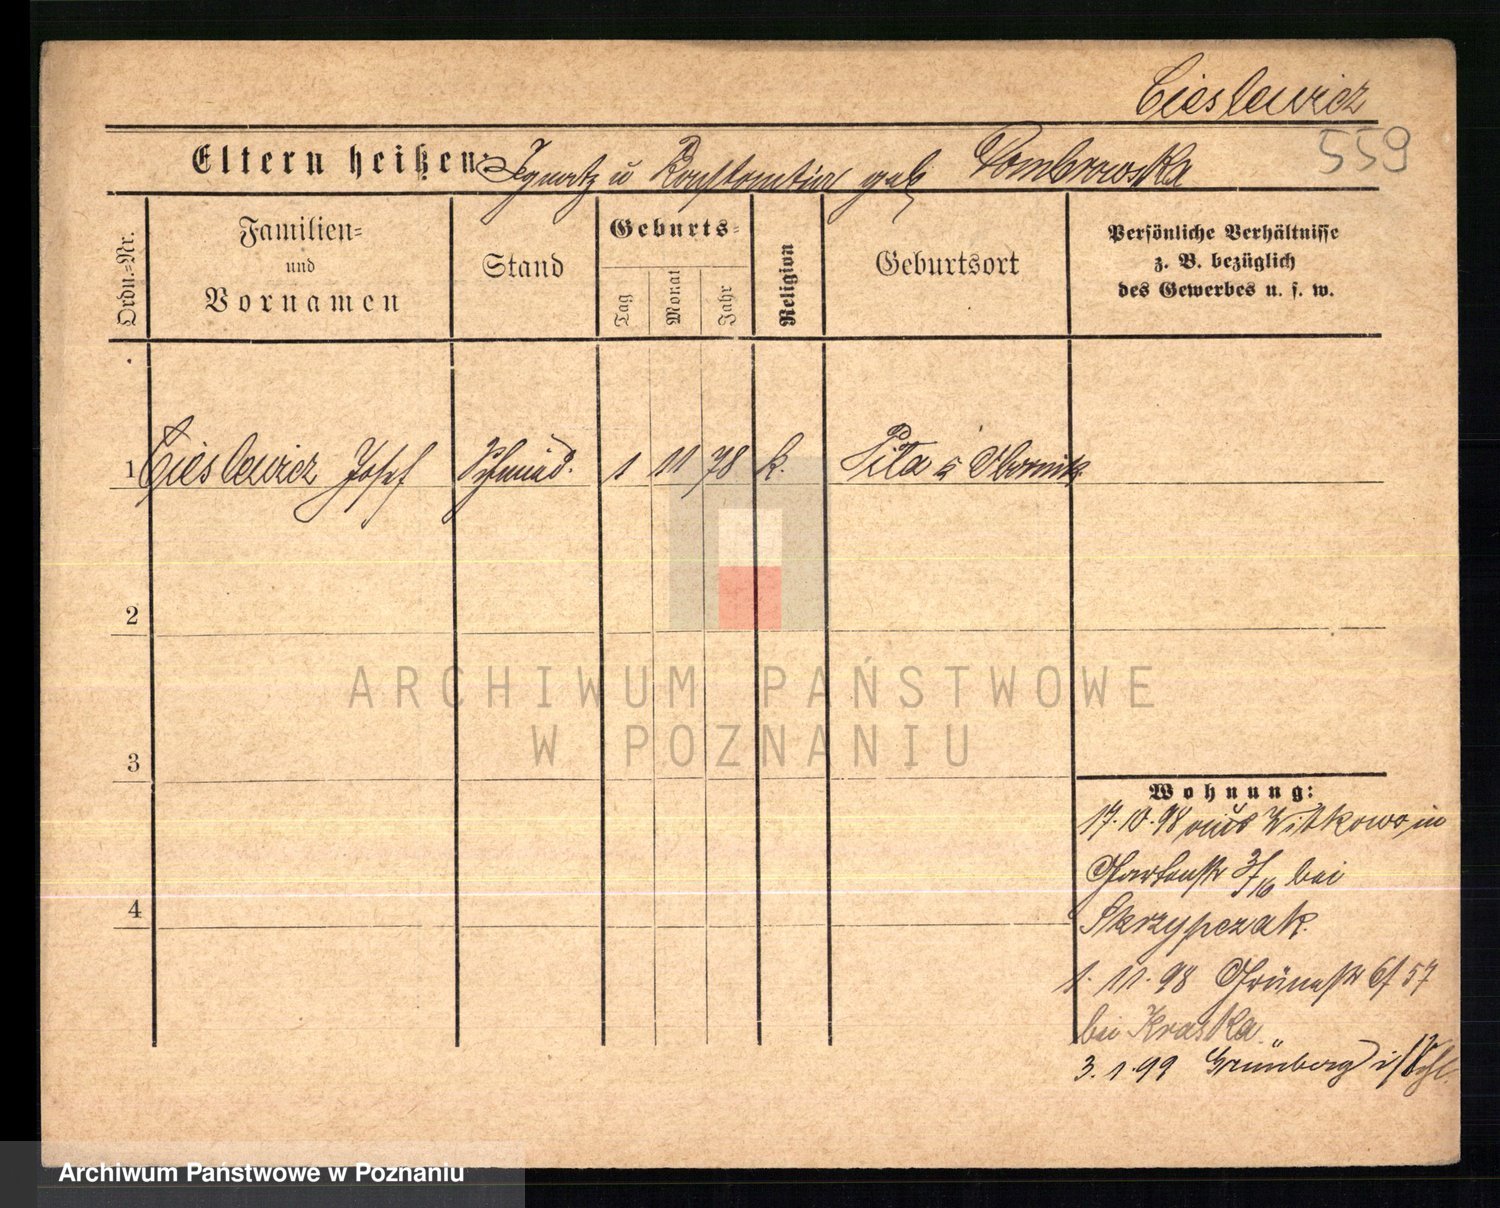 Cieslewicz
559
Eltern heißen: Ignatz u Konstantia geb Dombrowska
Ordn.=Nr.
Familien=
und
Vornamen
Stand
Geburts=
Tag
Monat
Jahr
Religion
Geburtsort
Persönliche Verhältnisse
z. B. bezüglich
des Gewerbes u. s. w.
1 Cieslewicz Josef Schmied. 1 11 78 k. Pila Obornik
2
3
4
Wohnung:
17.10.98 aus Witkowo in
Gartenstr 3/16 bei
Skrzypczak.
1.11.98 Grünestr 6/57
bei Kraska.
3.1.99 Grünberg i/Schl.
ARCHIWUM PAŃSTWOWE
W POZNANIU
Archiwum Państwowe w Poznaniu